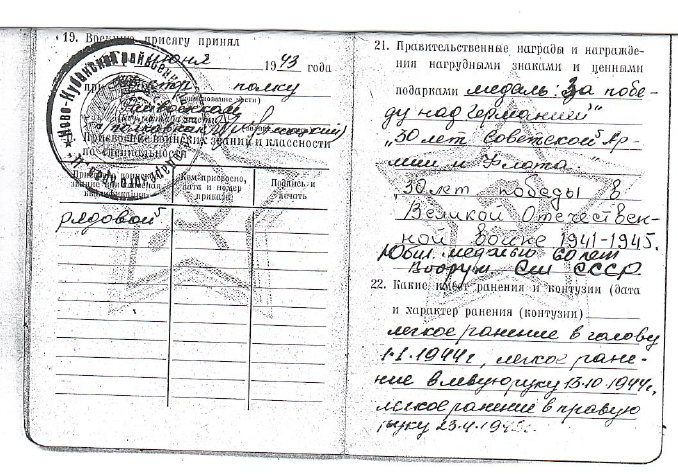 19. Военную присягу принял
июня 1943 года
при стр. полку
(наименование части)
20. Присвоение воинских званий и классности
по специальности
Кем присвоено,
дата и номер
приказа
Подпись и
печать
рядовой
21. Правительственные награды и награжде-
ния нагрудными знаками и ценными
подарками медаль: „За побе-
ду над Германией"
„30 лет Советской Ар-
мии и Флота
„30 лет победы в
Великой Отечествен-
ной войне 1941-1945.
Юбил. медалью 60 лет
Вооруж. Сил СССР.
22. Какие имеет ранения и контузии (дата
и характер ранения (контузии)
легкое ранение в голову
1.1.1944г, легкое ране-
ние в левую руку 13.10.1944г,
легкое ранение в правую
руку 23.4.